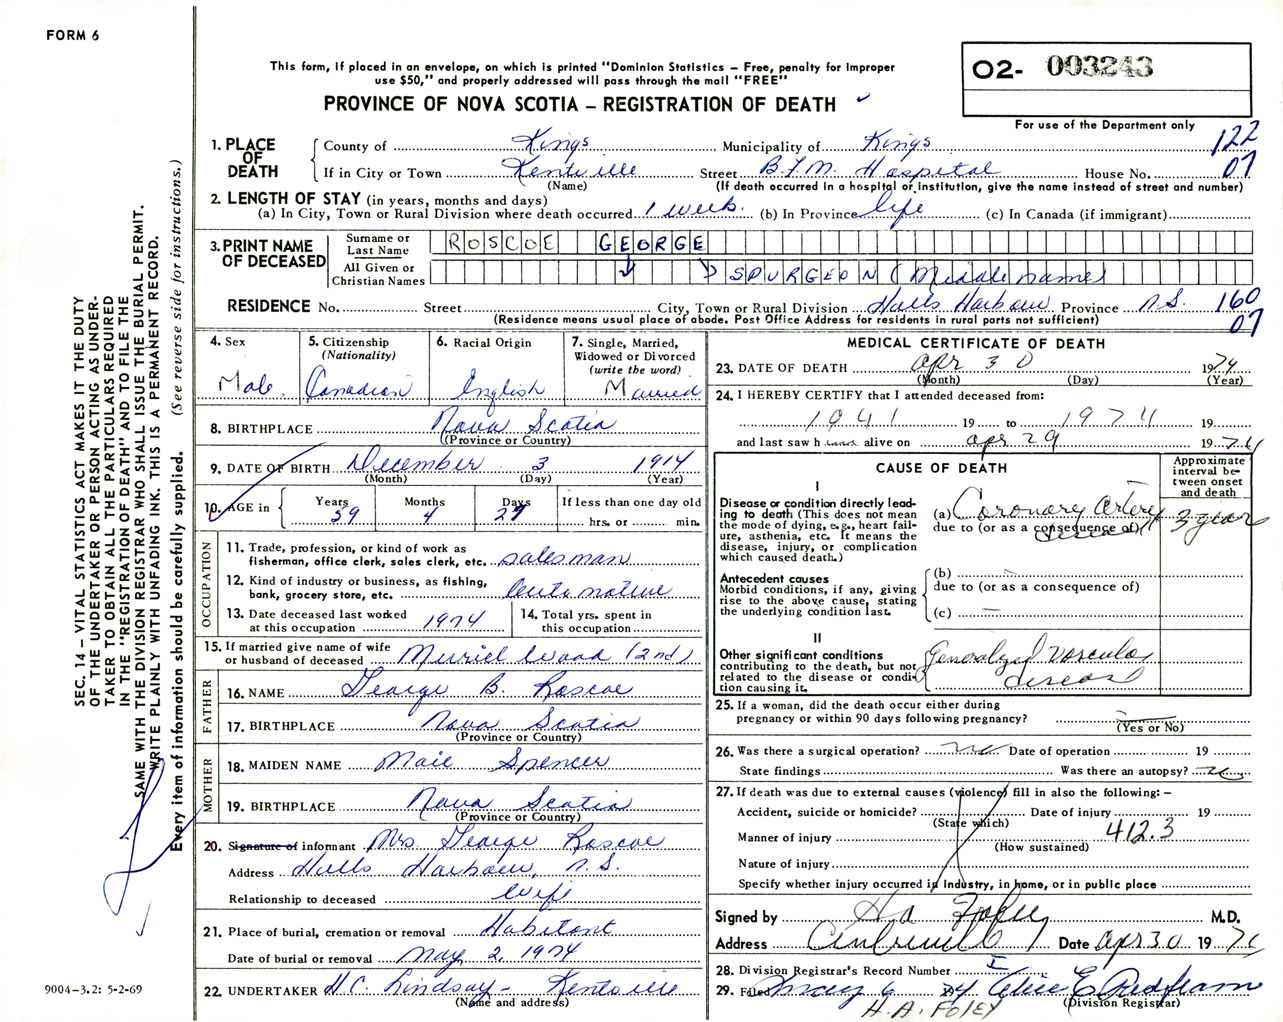 FORM 6
This form, if placed in an envelope, on which is printed "Dominion Statistics – Free, penalty for improper
use $50," and properly addressed will pass through the mail "FREE"
PROVINCE OF NOVA SCOTIA – REGISTRATION OF DEATH ✓
O2- 003243
For use of the Department only
122
07
1. PLACE OF DEATH
County of Kings Municipality of Kings
If in City or Town Kentville Street B.F.M. Hospital House No.
(Name) (If death occurred in a hospital or institution, give the name instead of street and number)
2. LENGTH OF STAY (in years, months and days)
(a) In City, Town or Rural Division where death occurred 1 week. (b) In Province life (c) In Canada (if immigrant)
3. PRINT NAME OF DECEASED
Surname or Last Name ROSCOE GEORGE
All Given or Christian Names SPURGEON (Middle name)
RESIDENCE No. Street City, Town or Rural Division Halls Harbour Province N.S. 160
07
(Residence means usual place of abode. Post Office Address for residents in rural parts not sufficient)
4. Sex Male.
5. Citizenship (Nationality) Canadian
6. Racial Origin English
7. Single, Married, Widowed or Divorced (write the word) Married
8. BIRTHPLACE Nova Scotia
(Province or Country)
9. DATE OF BIRTH December 3 1914
(Month) (Day) (Year)
10. AGE in Years 59 Months 4 Days 27 If less than one day old hrs. or min.
OCCUPATION
11. Trade, profession, or kind of work as
fisherman, office clerk, sales clerk, etc. salesman
12. Kind of industry or business, as fishing,
bank, grocery store, etc. Automotive
13. Date deceased last worked
at this occupation 1974
14. Total yrs. spent in
this occupation
15. If married give name of wife
or husband of deceased Muriel Wood (2nd)
FATHER
16. NAME George B. Roscoe
17. BIRTHPLACE Nova Scotia
(Province or Country)
MOTHER
18. MAIDEN NAME Maie Spencer
19. BIRTHPLACE Nova Scotia
(Province or Country)
20. Signature of informant Mrs George Roscoe
Address Halls Harbour, N.S.
Relationship to deceased Wife
21. Place of burial, cremation or removal Habitant
Date of burial or removal May 2, 1974
22. UNDERTAKER H.C. Lindsay – Kentville
(Name and address)
MEDICAL CERTIFICATE OF DEATH
23. DATE OF DEATH Apr 30 1974
(Month) (Day) (Year)
24. I HEREBY CERTIFY that I attended deceased from:
1941 19 to 1974 19
and last saw h im alive on apr 29 1974
CAUSE OF DEATH
Approximate interval between onset and death
I
Disease or condition directly lead-
ing to death (This does not mean
the mode of dying, e.g., heart fail-
ure, asthenia, etc. It means the
disease, injury, or complication
which caused death.)
(a) Coronary artery disease 3 years
due to (or as a consequence of)
Antecedent causes
Morbid conditions, if any, giving
rise to the above cause, stating
the underlying condition last.
(b) –
due to (or as a consequence of)
(c) –
II
Other significant conditions
contributing to the death, but not
related to the disease or condi-
tion causing it.
Generalized vascular
disease
25. If a woman, did the death occur either during
pregnancy or within 90 days following pregnancy?
(Yes or No)
26. Was there a surgical operation? no Date of operation 19
State findings Was there an autopsy? no
27. If death was due to external causes (violence) fill in also the following: –
Accident, suicide or homicide? Date of injury 19
(State which)
Manner of injury 412.3
(How sustained)
Nature of injury
Specify whether injury occurred in Industry, in home, or in public place
Signed by H A Foley M.D.
Address Centreville Date Apr 30 1974
28. Division Registrar's Record Number I
29. Filed May 6 74 Alice E. Redfearn
(Division Registrar)
H.A. FOLEY
SEC. 14 – VITAL STATISTICS ACT MAKES IT THE DUTY
OF THE UNDERTAKER OR PERSON ACTING AS UNDER-
TAKER TO OBTAIN ALL THE PARTICULARS REQUIRED
IN THE "REGISTRATION OF DEATH" AND TO FILE THE
SAME WITH THE DIVISION REGISTRAR WHO SHALL ISSUE THE BURIAL PERMIT.
WRITE PLAINLY WITH UNFADING INK. THIS IS A PERMANENT RECORD.
Every item of information should be carefully supplied. (See reverse side for instructions.)
9004-3.2: 5-2-69